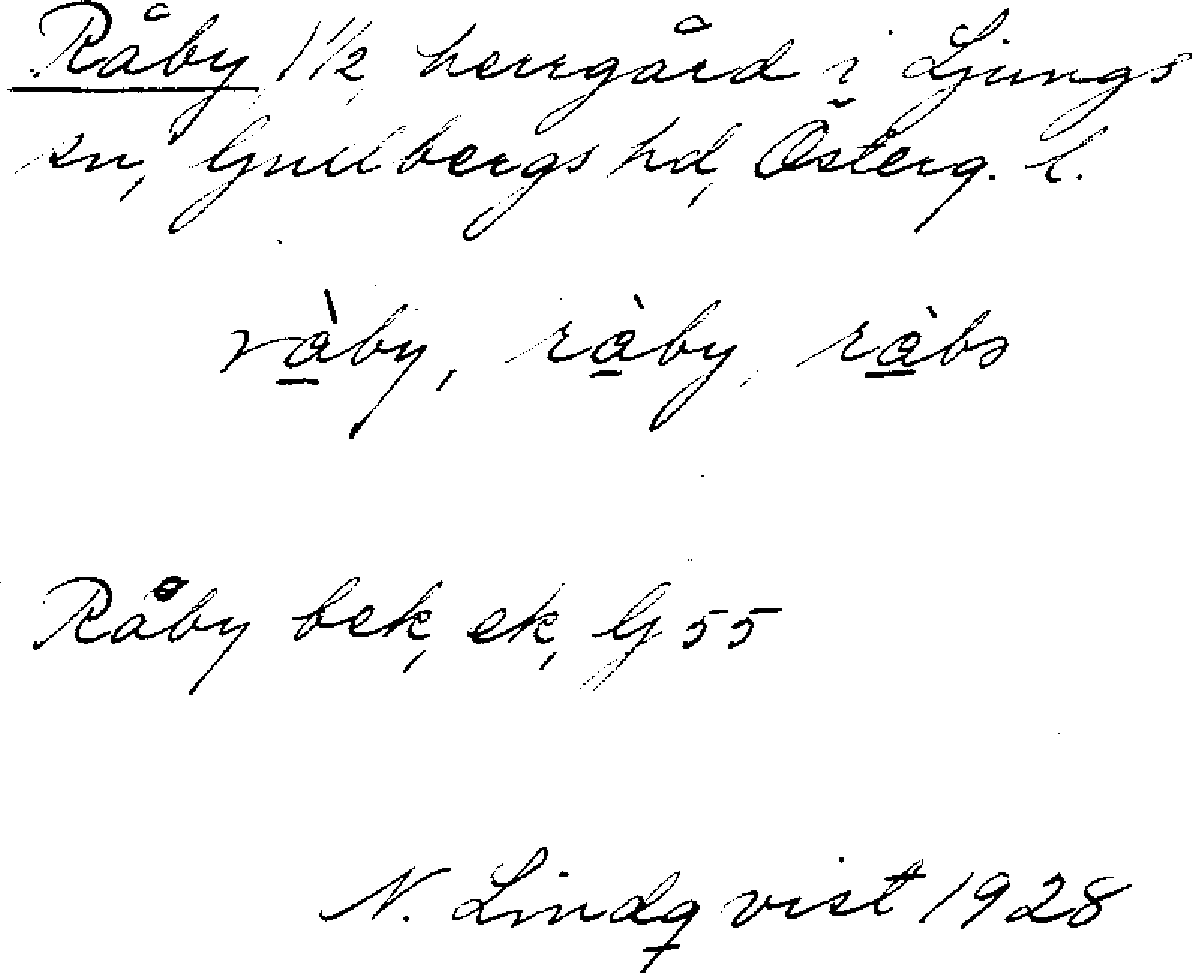 Råby 1 1/2, herrgård i Ljungs
sn, Gullbergs hd, Österg. l.
ràby, ràby, ràbs
Råby bek, ek, G 55
N. Lindqvist 1928